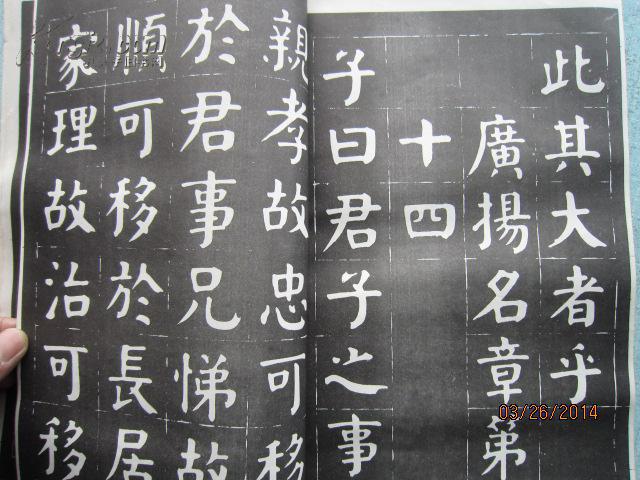 此其大者乎
廣揚名章第
十四
子曰君子之事
親孝故忠可移
於君事兄悌故
順可移於長居
家理故治可移
03/26/2014